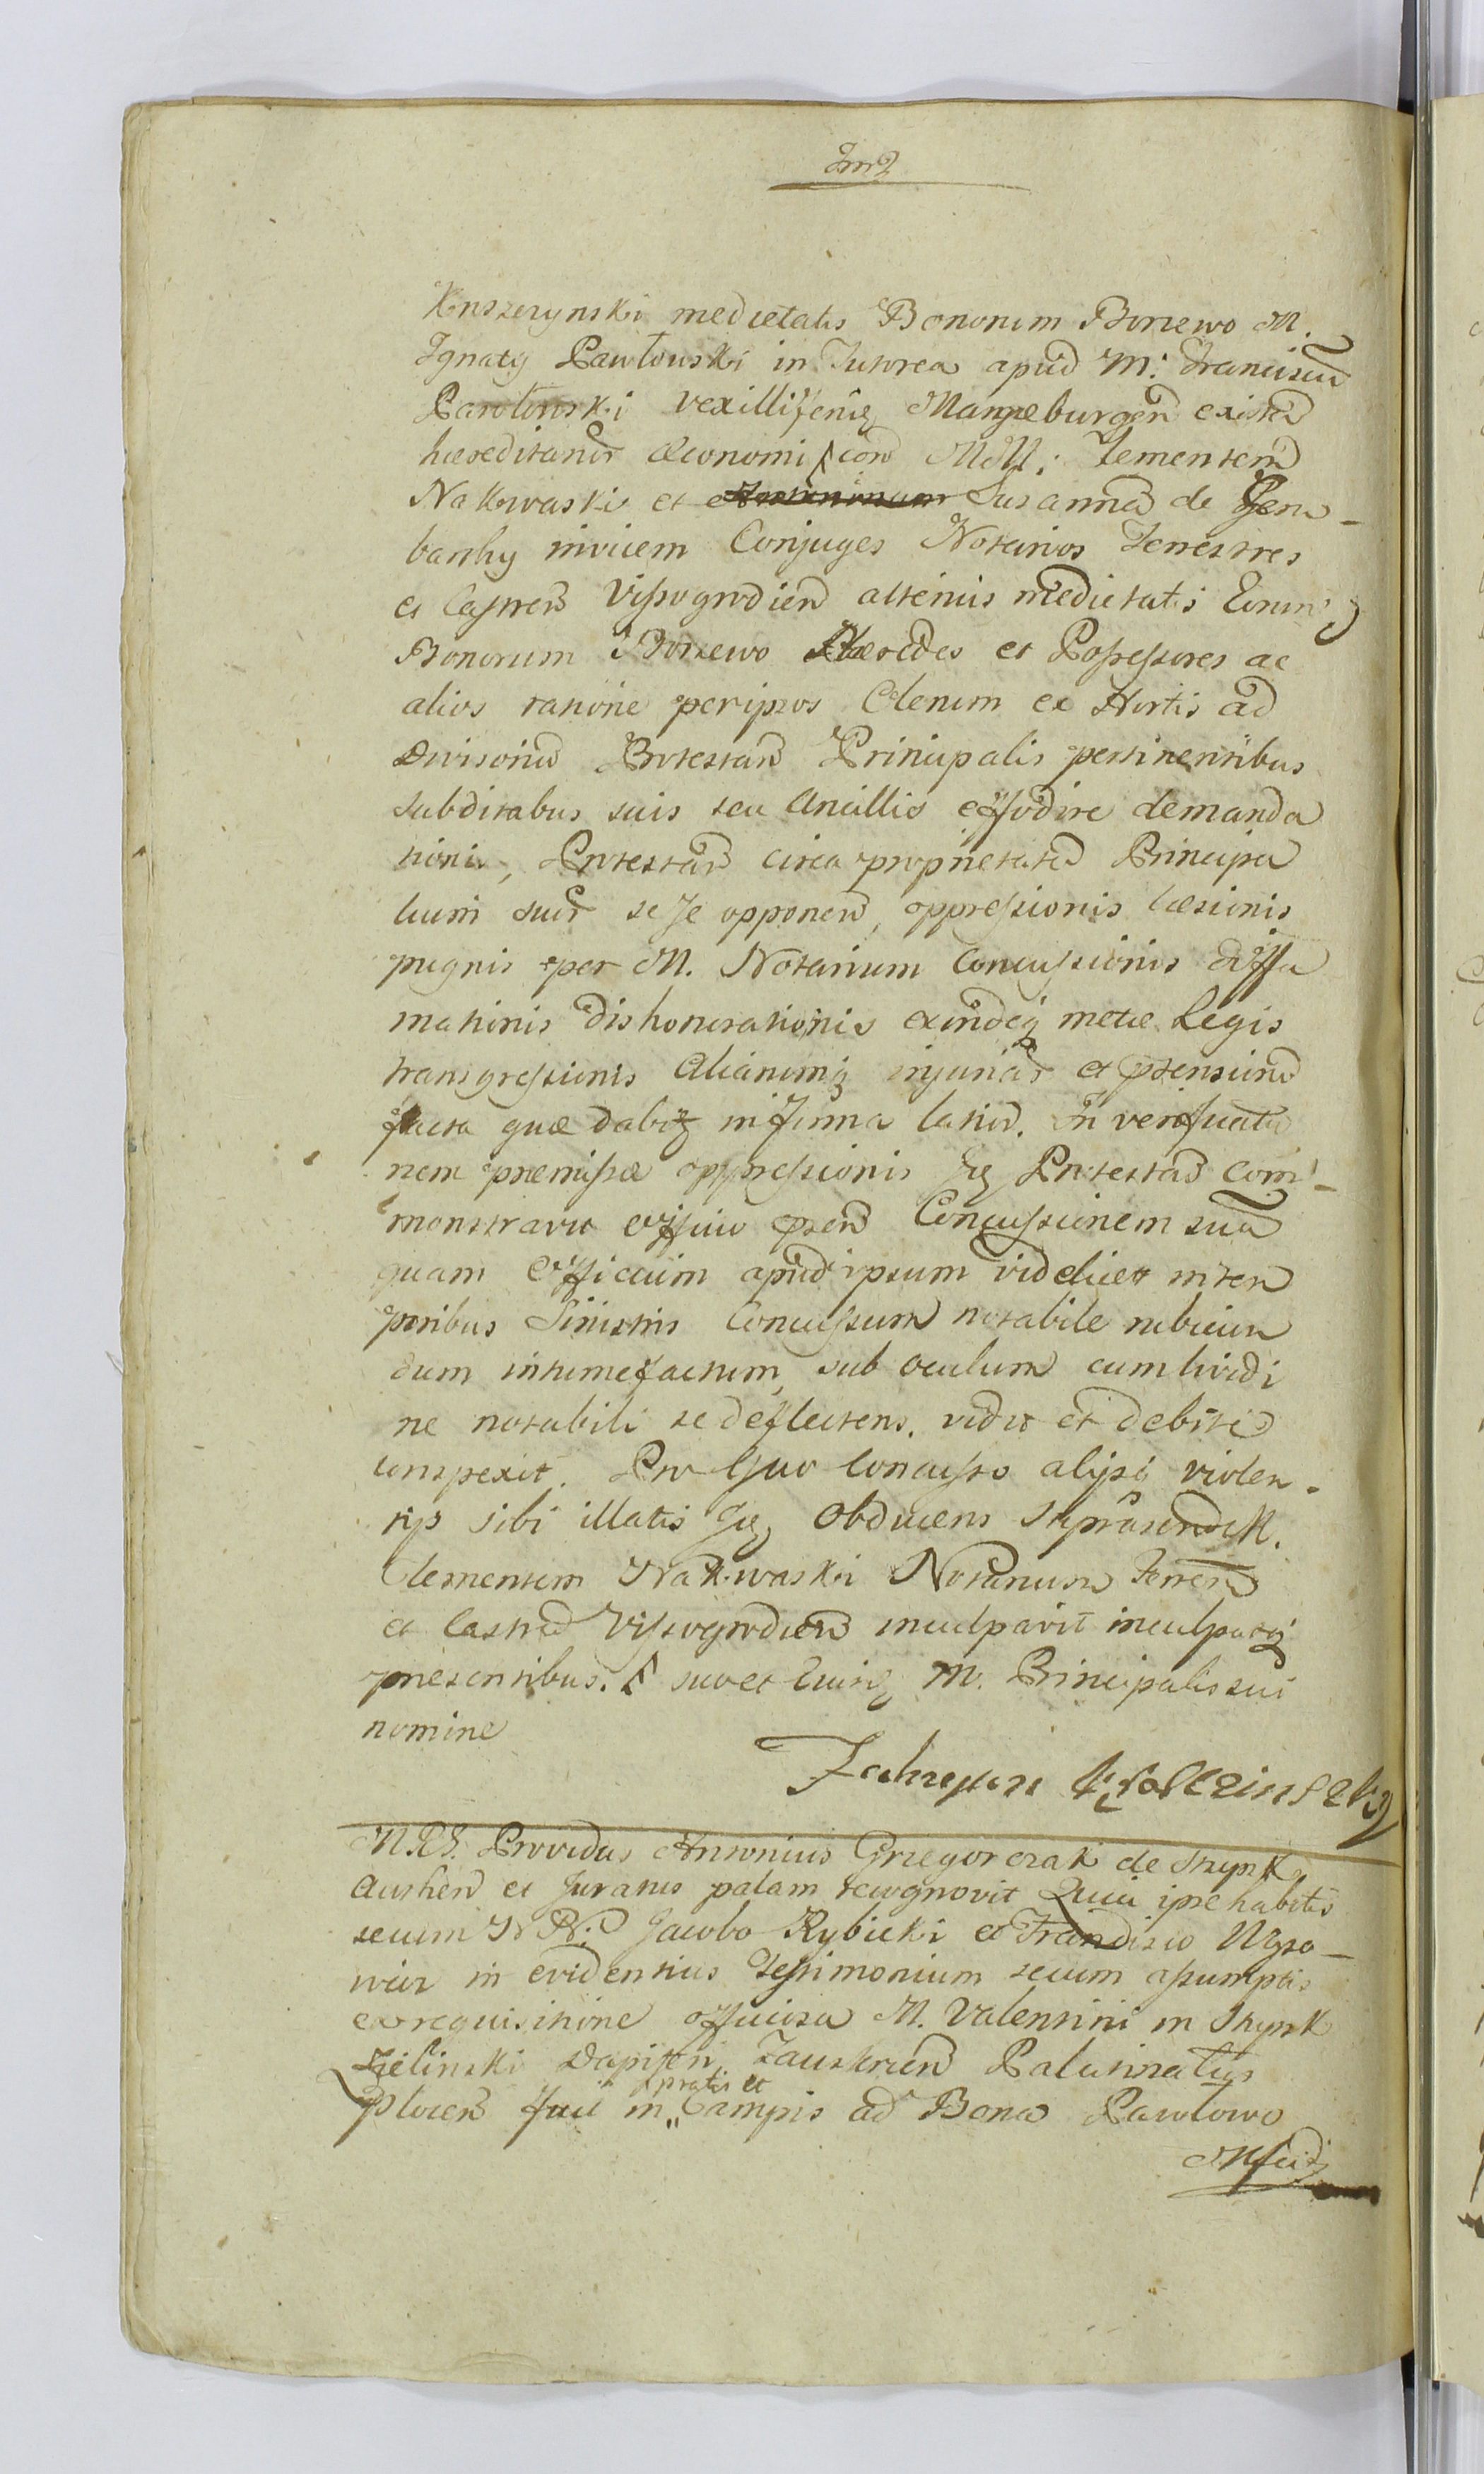 Kuszczynski medietatis Bonorum Borzewo M.
Ignaty Pawłowski in Juwrea apud M: Franciscu
Pawłowski Vexilliferū Mangeburgen existen
hæreditarior œconomi con MM: Clementem
Nakwaski et Susannā de Gem-
barthy invicem Conjuges Notarios Terrestres
et Castren Vissogrodien alterius medietatis Eorund
Bonorum Borzewo Hæredes et Possessores ac
alios ratione per ipsos Olerum ex Hortis ad
Divisoriū Protestan Principalis pertinentibus
subditabus suis seu Ancillis effodire demanda
tionis, Protestan circa proprietatē Principa
lium suor sese opponen, oppressionis læsionis
pugnis per M. Notarium Concussionis diffa
mationis dishonorationis exindeq metæ Legis
transgressionis Aliarumq injuriar et prtensionū
facta quæ dabit in Termina latius. In verificatio
nem præmissæ oppressionis Protestan com-
monstravit officio prsen Concussionem suā
quam Officium apud ipsum videlicet in tem
poribus Sinistris Concussum notabile rubicun
dum intumefactum, sub oculum cum lividi
ne notabili se deflectens. vidit et debite
conspexit. Pro quo concusso alijsq violen-
tijs sibi illatis obducens M.
Clementem Nakwaski Notarium Terren
et Castren Vissogrodien inculpavit inculpatq
præsentibus. suo et Eiusq M. Principalis sui
nomine

Providus Antonius Grzegorczak de Skupk
Authen et Juratus palam recognovit Quia ipse habitis
secum Jacobo Rybicki et Francisco
in evidentius Testimonium secum assumptis
ex requisitione officiosa M. Valentini in Skupk
Zielinski Dapiferi Zauskrien Palatinatus
pratis et
Plocen fuit in Campis ad Bona Pawłowo